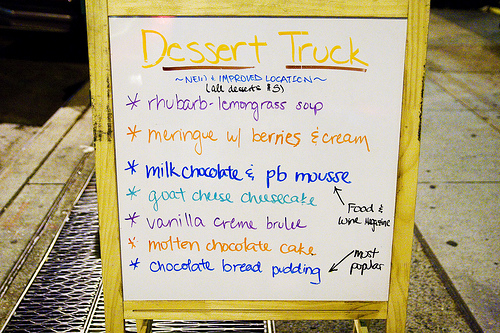 Dessert Truck
~ NEW + IMPROVED LOCATION ~
(all desserts $5)
* rhubarb-lemongrass soup
* meringue w/ berries & cream
* milk chocolate & pb mousse
* goat cheese cheesecake
Food &
Wine Magazine
* vanilla creme brulee
* molten chocolate cake
most
popular
* chocolate bread pudding